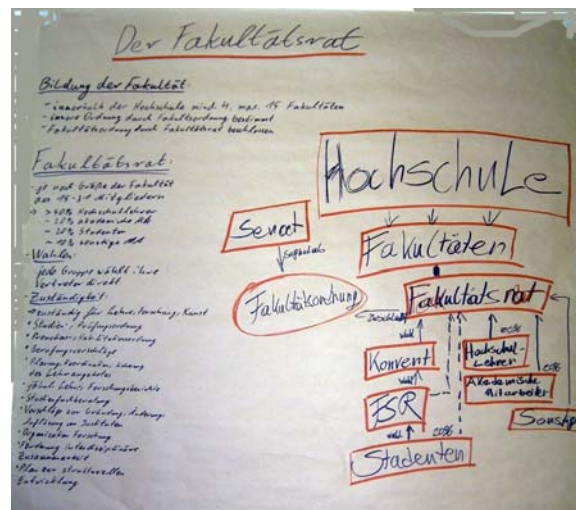 Der Fakultätsrat
Bildung der Fakultät:
- innerhalb der Hochschule mind. 4, max. 15 Fakultäten
- innere Ordnung durch Fakultätsordnung bestimmt
- Fakultätsordnung durch Fakultätsrat beschlossen
Fakultätsrat:
- je nach Größe der Fakultät
aus 15-31 Mitgliedern
Hochschullehrer
- 20% akademische MA
- 20% Studenten
- 10% sonstige MA
- Wahlen:
jede Gruppe wählt ihre
Vertreter direkt
- Zuständigkeit:
zuständig für Lehre, Forschung, Kunst
• Studien-, Prüfungsordnung
• Promotions-, Habilitationsordnung
• Berufungsvorschläge
• Planung, Koordination
des Lehrangebotes
• Lehr-, Forschungsberichte
• Studienfachberatung
• Vorschläge zur Gründung, Änderung,
Auflösung von Instituten
• Organisation Forschung
• Förderung interdisziplinäre
Zusammenarbeit
• Plan zur strukturellen
Entwicklung
Hochschule
Senat
Fakultäten
Fakultätsordnung
Fakultätsrat
Konvent
wählt
Hochschul-
Lehrer
Akademische
Mitarbeiter
FSR
wählt
20%
Sonstige
Studenten